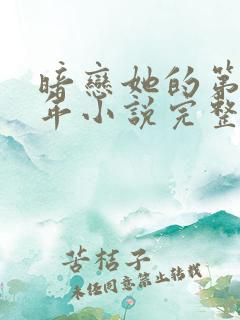 暗戀她的第
年小說完整
苦桔子
未经同意禁止转载